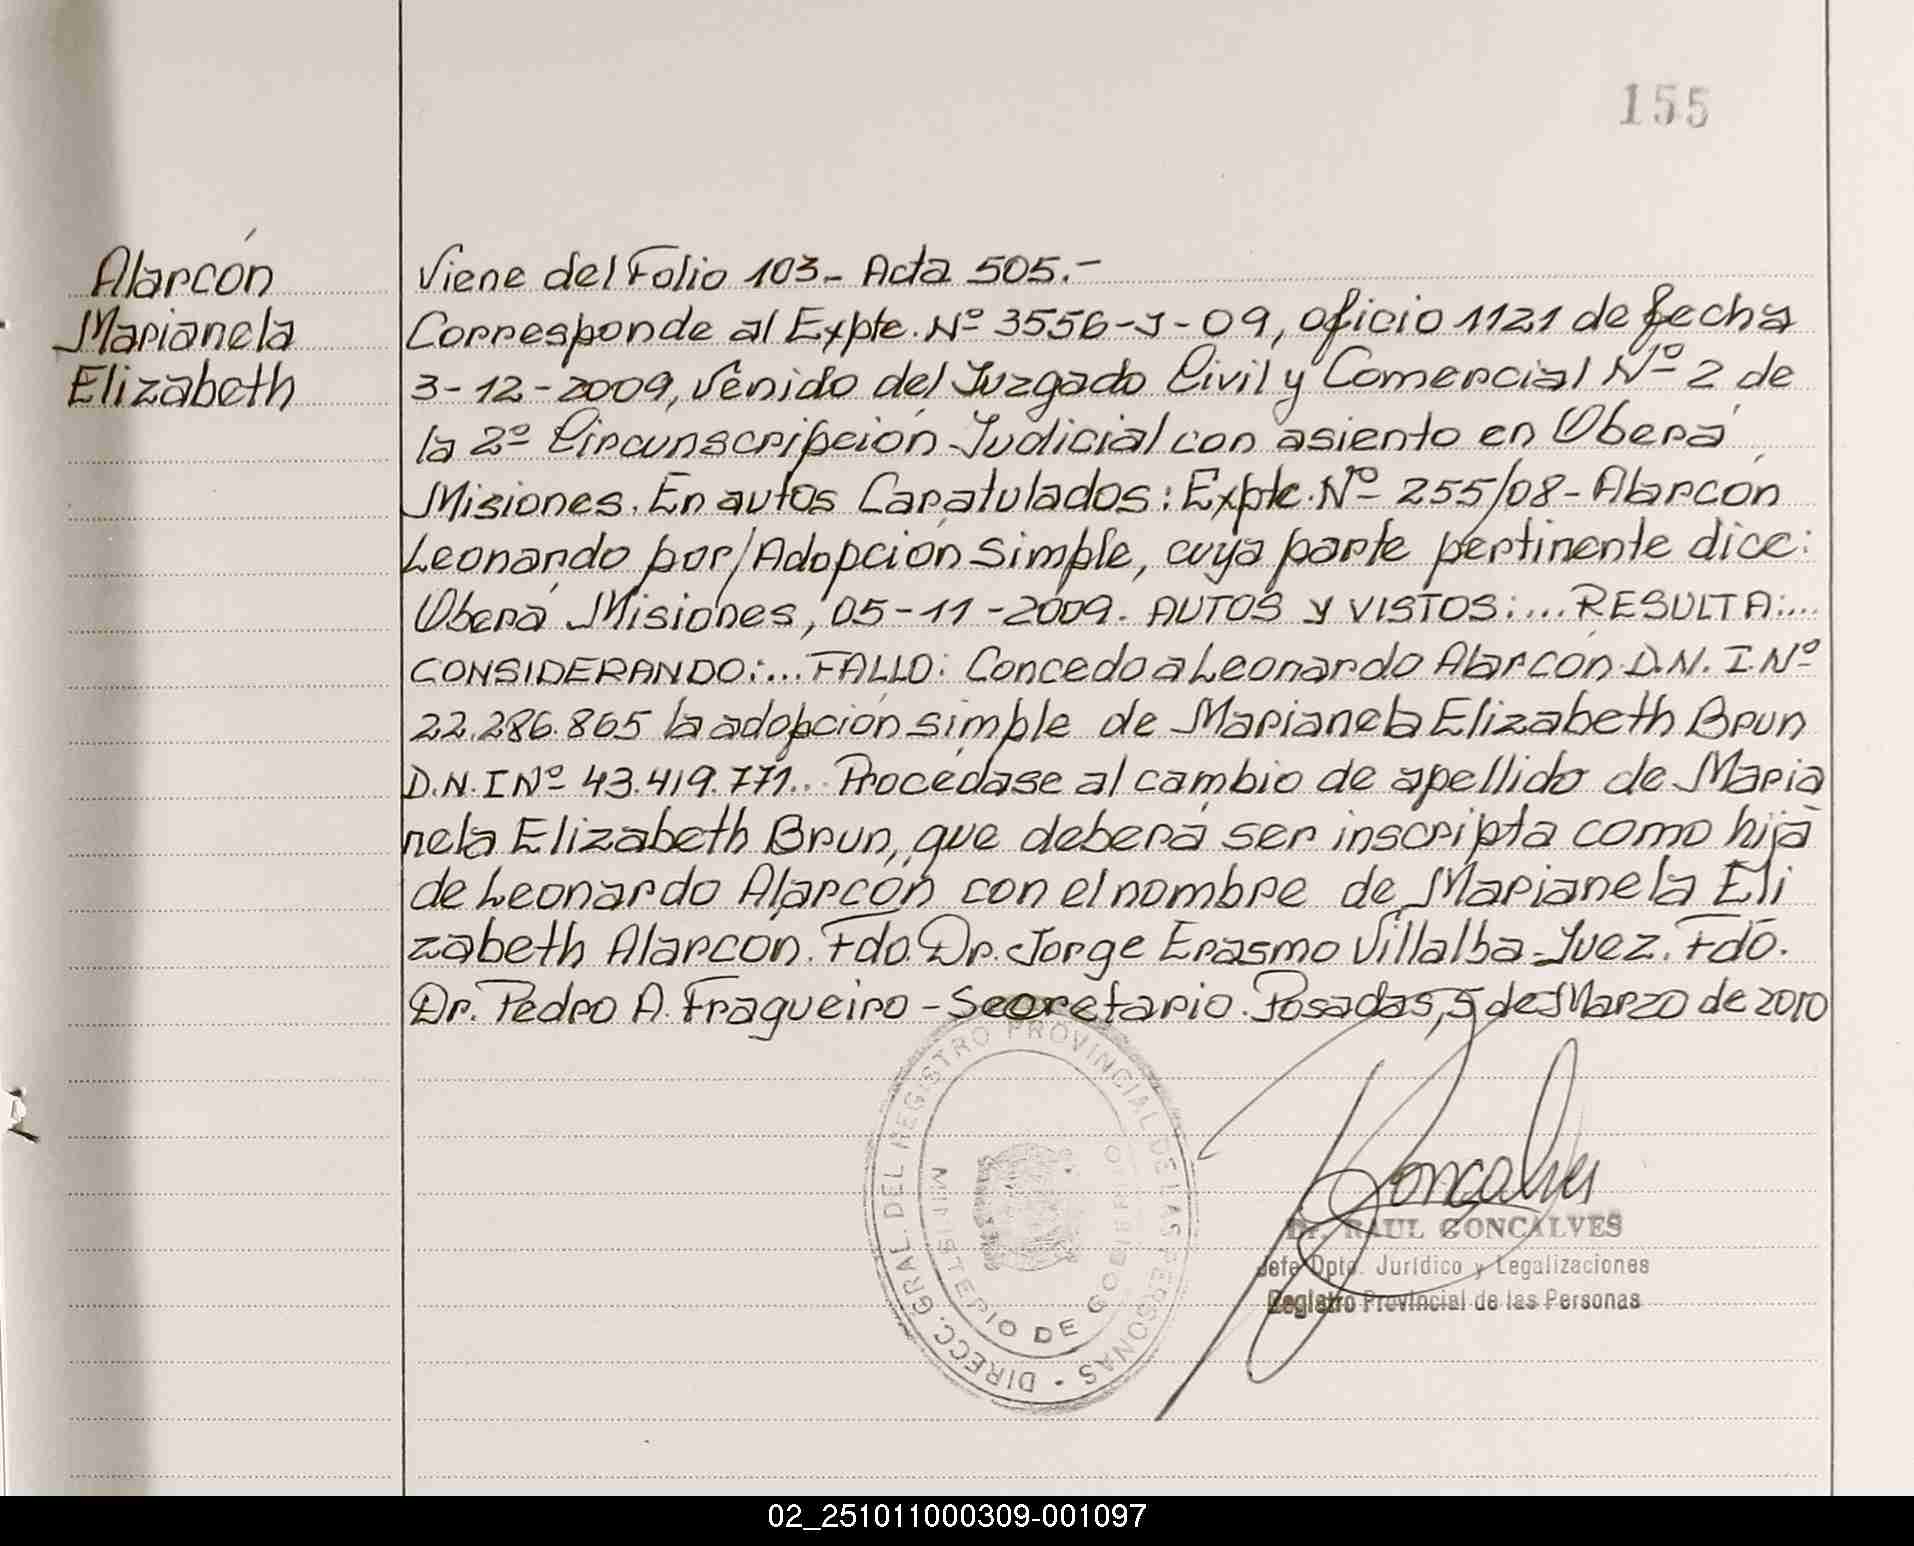 155
Alarcón
Marianela
Elizabeth
Viene del Folio 103.- Acta 505.-
Corresponde al Expte. Nº 3556-J-09, oficio 1121 de fecha
3-12-2009, venido del Juzgado Civil y Comercial Nº 2 de
la 2º Circunscripción Judicial con asiento en Oberá
Misiones. En autos Caratulados: Expte. Nº 255/08 - Alarcón
Leonardo por/Adopción Simple, cuya parte pertinente dice:
Oberá Misiones, 05-11-2009. AUTOS y VISTOS:... RESULTA:...
CONSIDERANDO:... FALLO: Concedo a Leonardo Alarcón D.N.I. Nº
22.286.865 la adopción simple de Marianela Elizabeth Brun
D.N.I Nº 43.419.771... Procédase al cambio de apellido de Maria
nela Elizabeth Brun, que deberá ser inscripta como hija
de Leonardo Alarcón con el nombre de Marianela Eli
zabeth Alarcon. Fdo. Dr. Jorge Erasmo Villalba - Juez. Fdo.
Dr. Pedro A. Fragueiro - Secretario. Posadas, 5 de Marzo de 2010
DIRECC. GRAL. DEL REGISTRO PROVINCIAL DE LAS PERSONAS
MINISTERIO DE GOBIERNO
Goncalves
Dr. RAUL GONCALVES
Jefe Dpto. Jurídico y Legalizaciones
Registro Provincial de las Personas
02_251011000309-001097